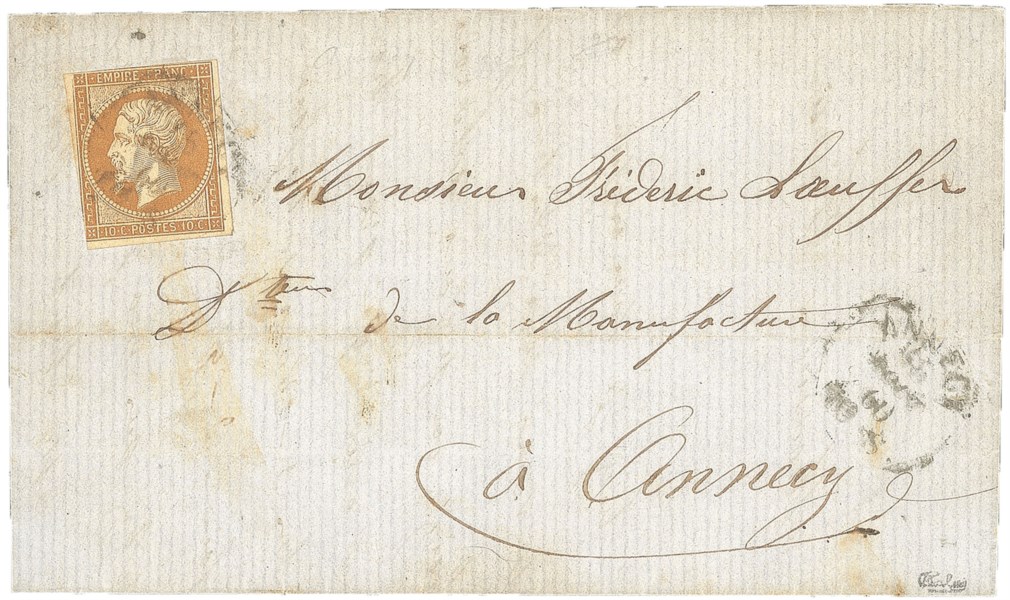 EMPIRE FRANC
10·C·POSTES 10·C
Monsieur Fréderic Lœuffer
Dteur de la Manufacture
à Annecy
ANNECY